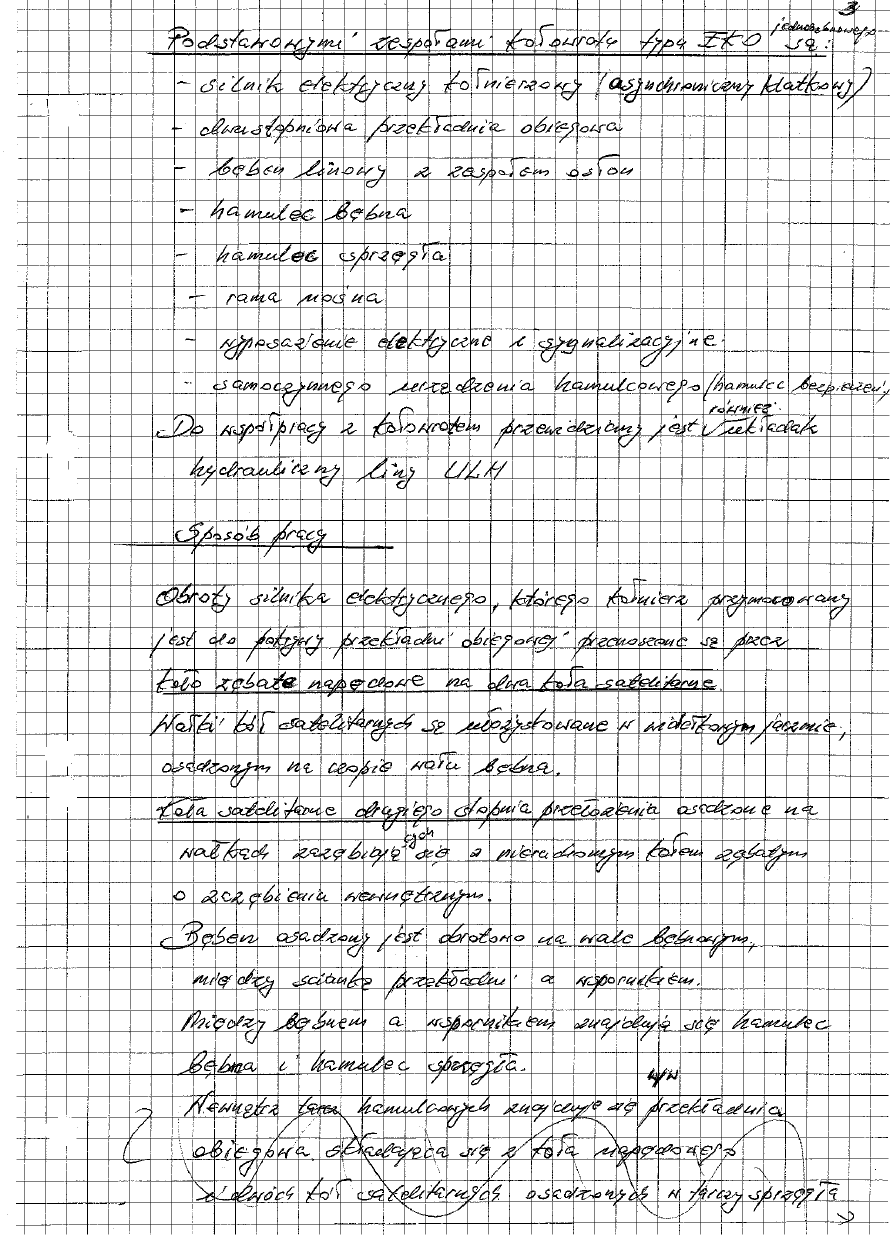 3
jednobębnowego
Podstawowymi zespołami kołowrotu typu EKO są:
- silnik elektryczny kołnierzowy (asynchroniczny klatkowy)
- dwustopniowa przekładnia obiegowa
- bęben linowy z zespołem osłon
- hamulec bębna
- hamulec sprzęgła
- rama nośna
- wyposażenie elektryczne i sygnalizacyjne.
- samoczynnego urządzenia hamulcowego (hamulec bezpieczeń.
również
Do współpracy z kołowrotem przewidziany jest √układak
hydrauliczny liny ULH
Sposób pracy
Obroty silnika elektrycznego, którego kołnierz przymocowany
jest do pokrywy przekładni obiegowej przenoszone są przez
koło zębate napędowe na dwa koła satelitarne
Wałki kół satelitarnych są ułożyskowane w widełkowym jarzmie,
osadzonym na czopie wału bębna.
Koła satelitarne drugiego stopnia przełożenia osadzone na
cych
wałkach zazębiają się z nieruchomym kołem zębatym
o zazębieniu wewnętrznym.
Bęben osadzony jest obrotowo na wale bębnowym,
między ścianką przekładni a wspornikiem.
Między bębnem a wspornikiem znajdują się hamulec
bębna i hamulec sprzęgła.
w/w
Wewnątrz tarcz hamulcowych znajduje się przekładnia
obiegowa składająca się z koła napędowego
i dwóch kół satelitarnych osadzonych w tarczy sprzęgła